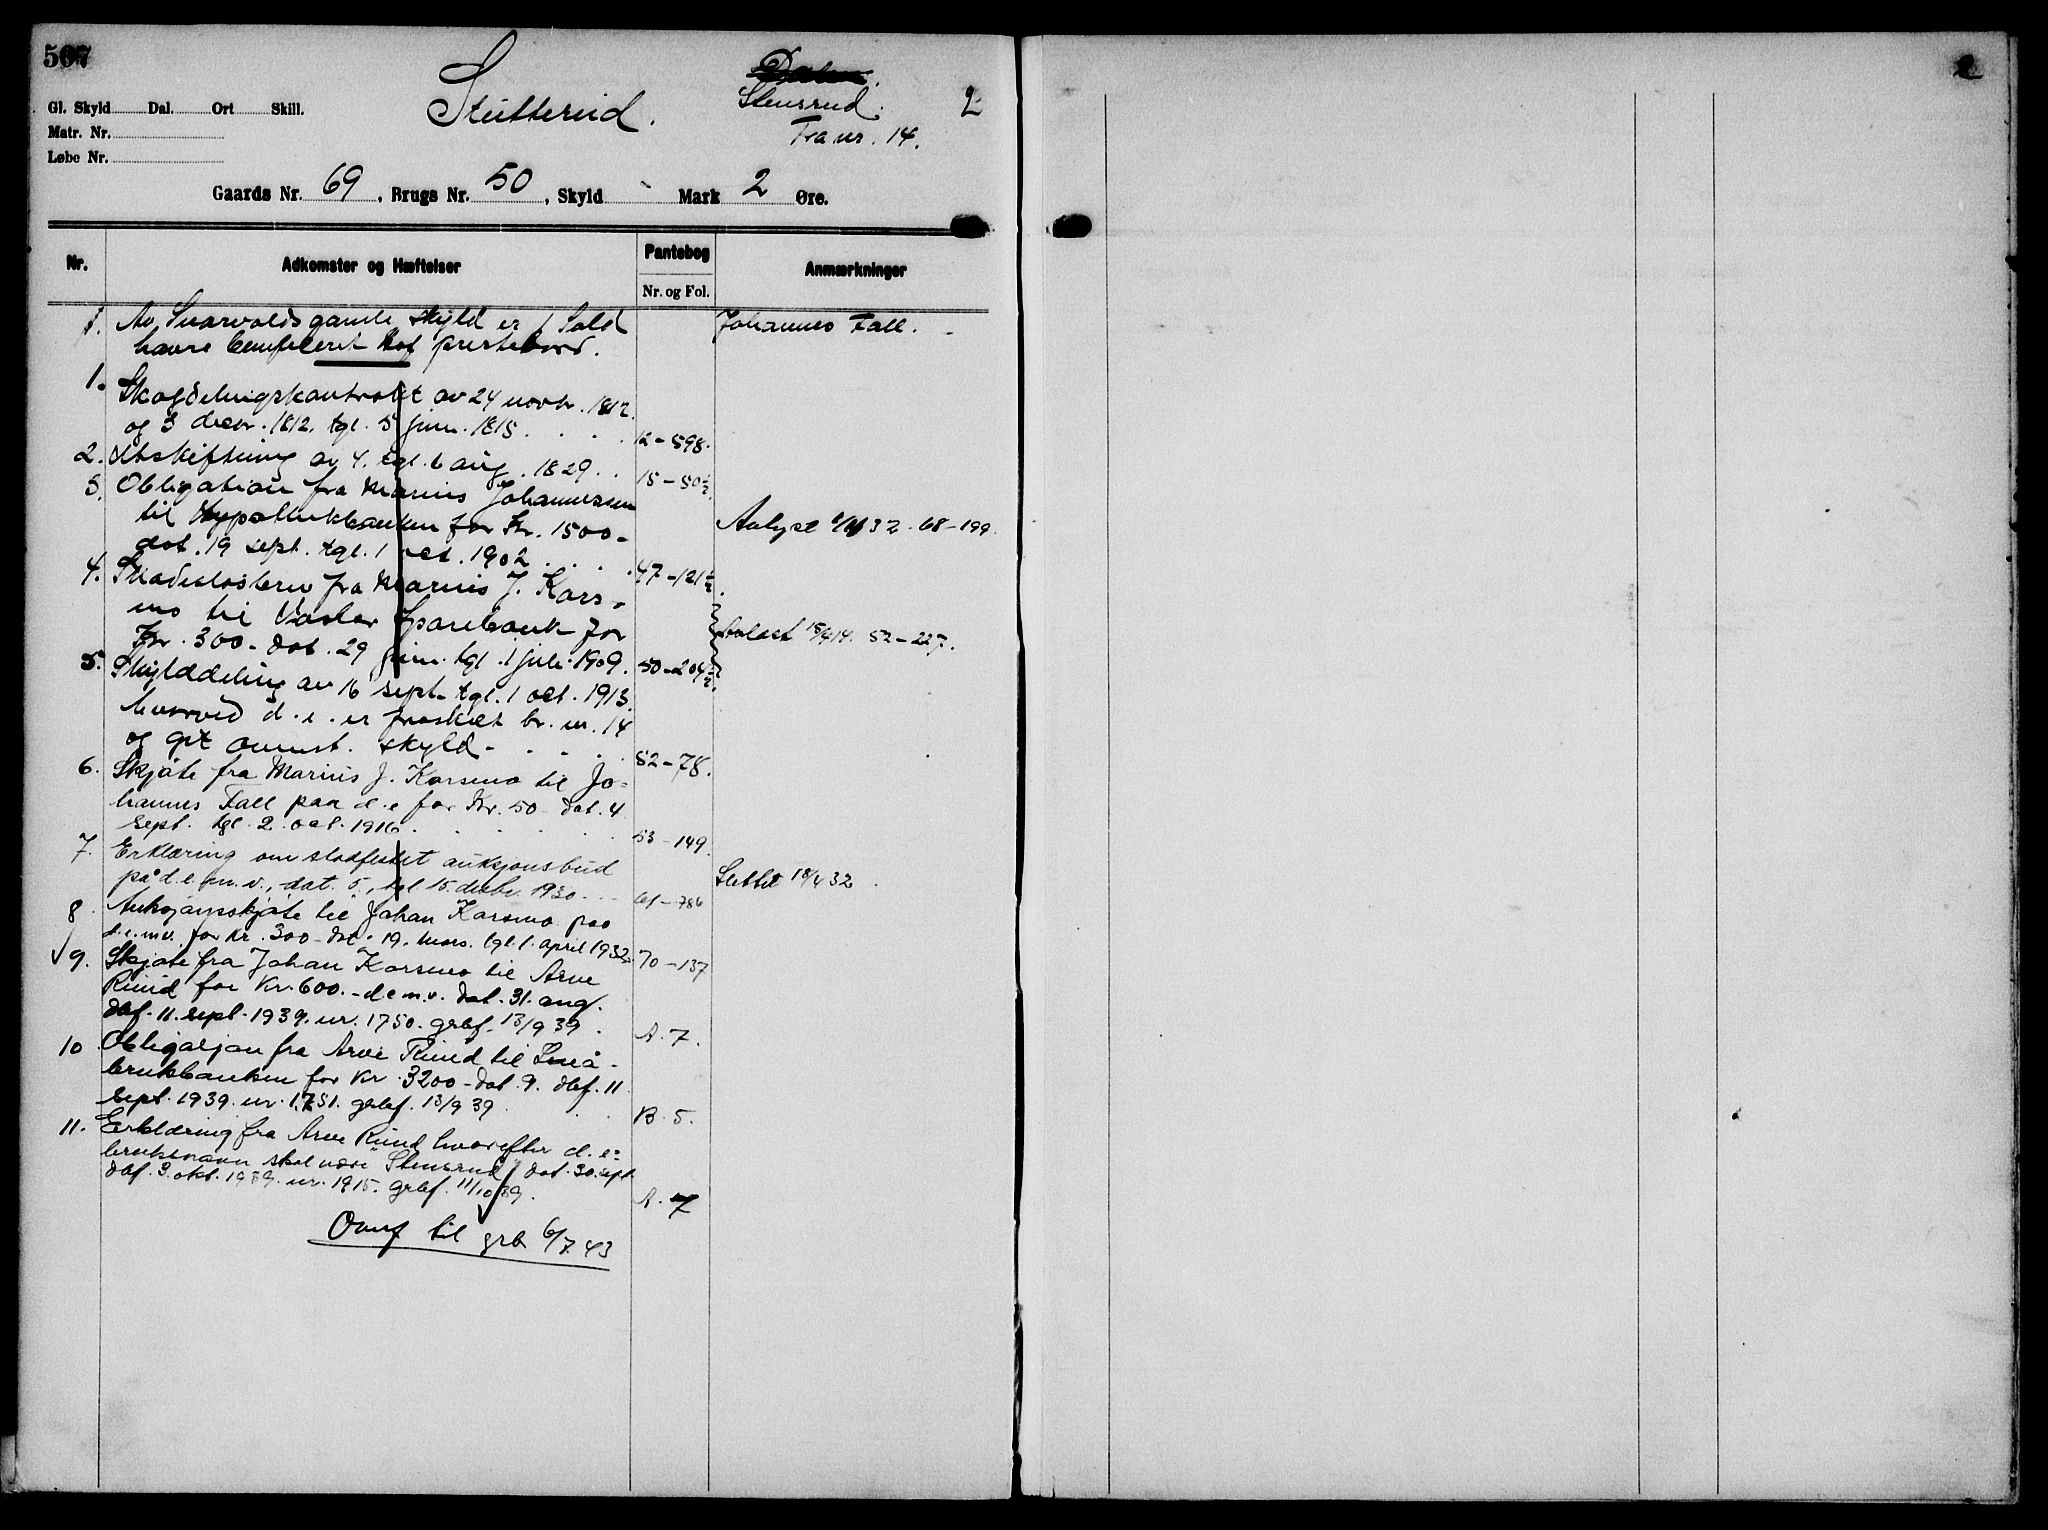 507
Stutterud.
Dalen.
Stensrud.
Fra nr. 14.
2
Gl. Skyld Dal. Ort Skill.
Matr. Nr.
Løbe Nr.
Gaards Nr. 69, Brugs Nr. 50, Skyld - Mark 2 Øre.
Nr. Adkomster og Hæftelser Pantebog Nr. og Fol. Anmærkninger
1. Av Svarvolds gamle skyld er 1 Sold Johannes Fall.
havre beneficeret Hof prestebord.
1. Skogdelingskontrakt av 24 novbr. 1812
og 3 decbr. 1812, tgl. 5 juni 1815. 12-598.
2. Utskiftning av 4. tgl. 6 aug. 1829. 15-50½.
3. Obligation fra Marius Johannessen
til Hypotekbanken for Kr. 1500- Avlyst 1/4 32. 68-199.
dat. 19 sept. tgl. 1 oct. 1902 47-121½.
4. Skadesløsbrev fra Marius J. Kors-
mo til Vaaler Sparebank for
Kr. 300- dat. 29 juni tgl. 1 juli 1909. 50-204½. 15/4 14. 52-227.
5. Skylddeling av 16 sept. tgl. 1 oct. 1913.
hvorved d.e. er fraskilt br. nr. 14
og git ovenst. skyld - 52-78.
6. Skjøte fra Marius J. Korsmo til Jo-
hannes Fall paa d.e for Kr. 50- dat. 4
sept. tgl. 2 oct. 1916. 53-149.
7. Erklæring om stadfestet auksjonsbud
på d.e. m.v., dat. 5., tgl 15. desbr. 1930. 61-786 Slettet 18/4 32.
8 Auksjonsskjøte til Johan Korsmo paa
d.e. m.v. for kr. 300- dat. 19. mars. tgl. 1. april 1932. 70-137
9. Skjøte fra Johan Korsmo til Arve
Ruud for Kr. 600.- d e m.v. dat. 31. aug.
dbf. 11. sept. 1939. nr. 1750. grbf. 13/9 39. A. 7.
10 Obligasjon fra Arve Ruud til Små-
brukbanken for Kr. 3200- dat. 9. dbf. 11
sept. 1939. nr. 1751. grbf. 13/9 39. B. 5.
11. Erklæring fra Arve Ruud hvorefter d. e:
bruksnavn skal være "Stensrud" dat. 30. sept.
dbf. 3. okt. 1939. nr. 1915. grbf. 11/10 39. A. 7
Overf til grb 6/7 43